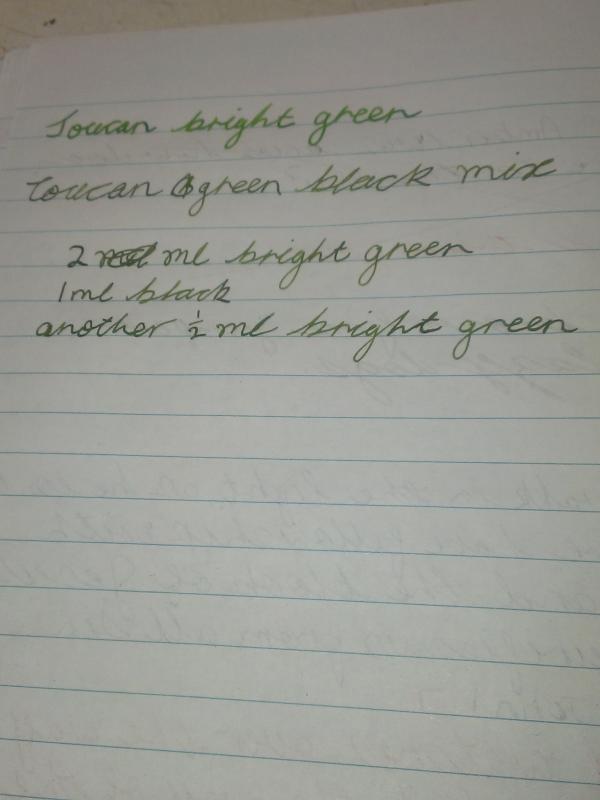 Toucan bright green
Toucan green black mix
2 ml bright green
1ml black
another ½ ml bright green